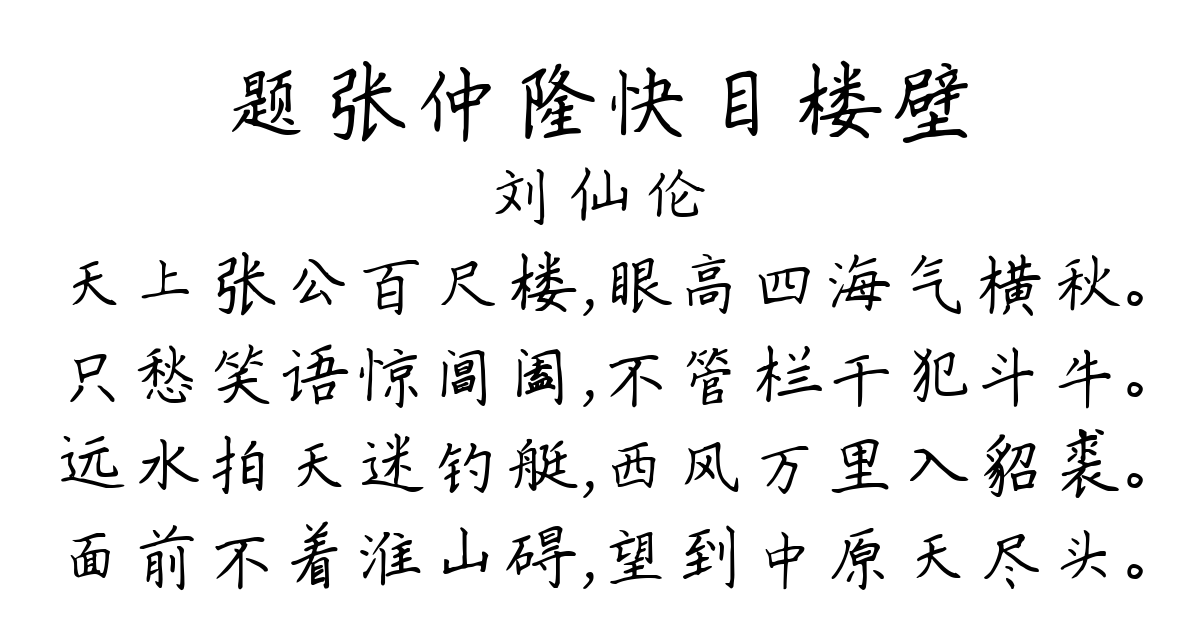 题张仲隆快目楼壁
刘仙伦
天上张公百尺楼,眼高四海气横秋。
只愁笑语惊阊阖,不管栏干犯斗牛。
远水拍天迷钓艇,西风万里入貂裘。
面前不着淮山碍,望到中原天尽头。